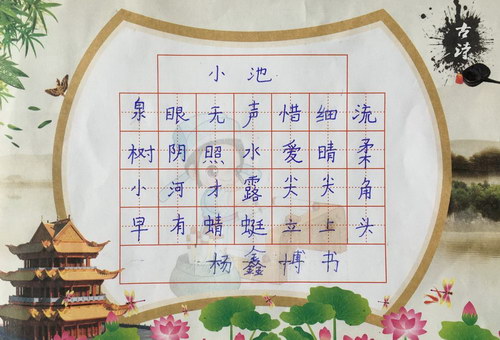 古诗
小池
泉眼无声惜细流
树阴照水爱晴柔
小河才露尖尖角
早有蜻蜓立上头
杨鑫博书